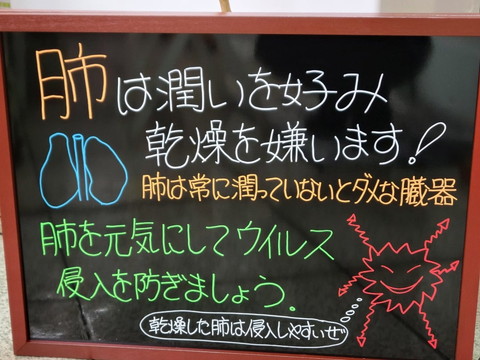 肺は潤いを好み
乾燥を嫌います!
肺は常に潤っていないとダメな臓器
肺を元気にしてウイルス
侵入を防ぎましょう。
乾燥した肺は侵入しやすいぜ